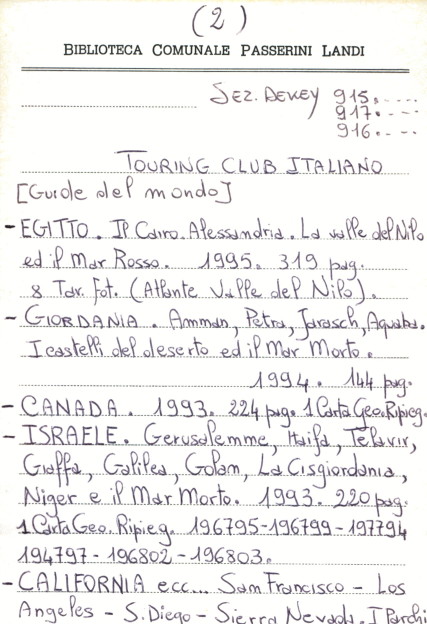 (2)
BIBLIOTECA COMUNALE PASSERINI LANDI
SEZ. DEWEY 915.----
917.---
916.---
TOURING CLUB ITALIANO
[Guide del mondo]
- EGITTO. Il Cairo. Alessandria. La valle del Nilo
ed il Mar Rosso. 1995. 319 pag.
8 Tav. Fot. (Atlante Valle del Nilo).
- GIORDANIA. Amman, Petra, Jarasch, Aquaba.
I castelli del deserto ed il Mar Morto.
1994. 144 pag.
- CANADA. 1993. 224 pag. 1 Carta Geo. Ripieg.
- ISRAELE. Gerusalemme, Haifa, Telaviv,
Giaffa, Galilea, Golan, La Cisgiordania,
Niger e il Mar Morto. 1993. 220 pag.
1 Carta Geo. Ripieg. 196795-196799-197794
194797-196802-196803.
- CALIFORNIA ecc... San Francisco - Los
Angeles - S. Diego - Sierra Nevada. I Parchi